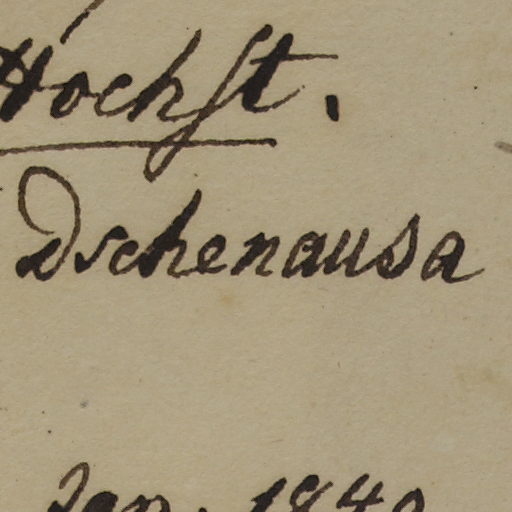 Hochst.
Dschenausa
Jan. 1840